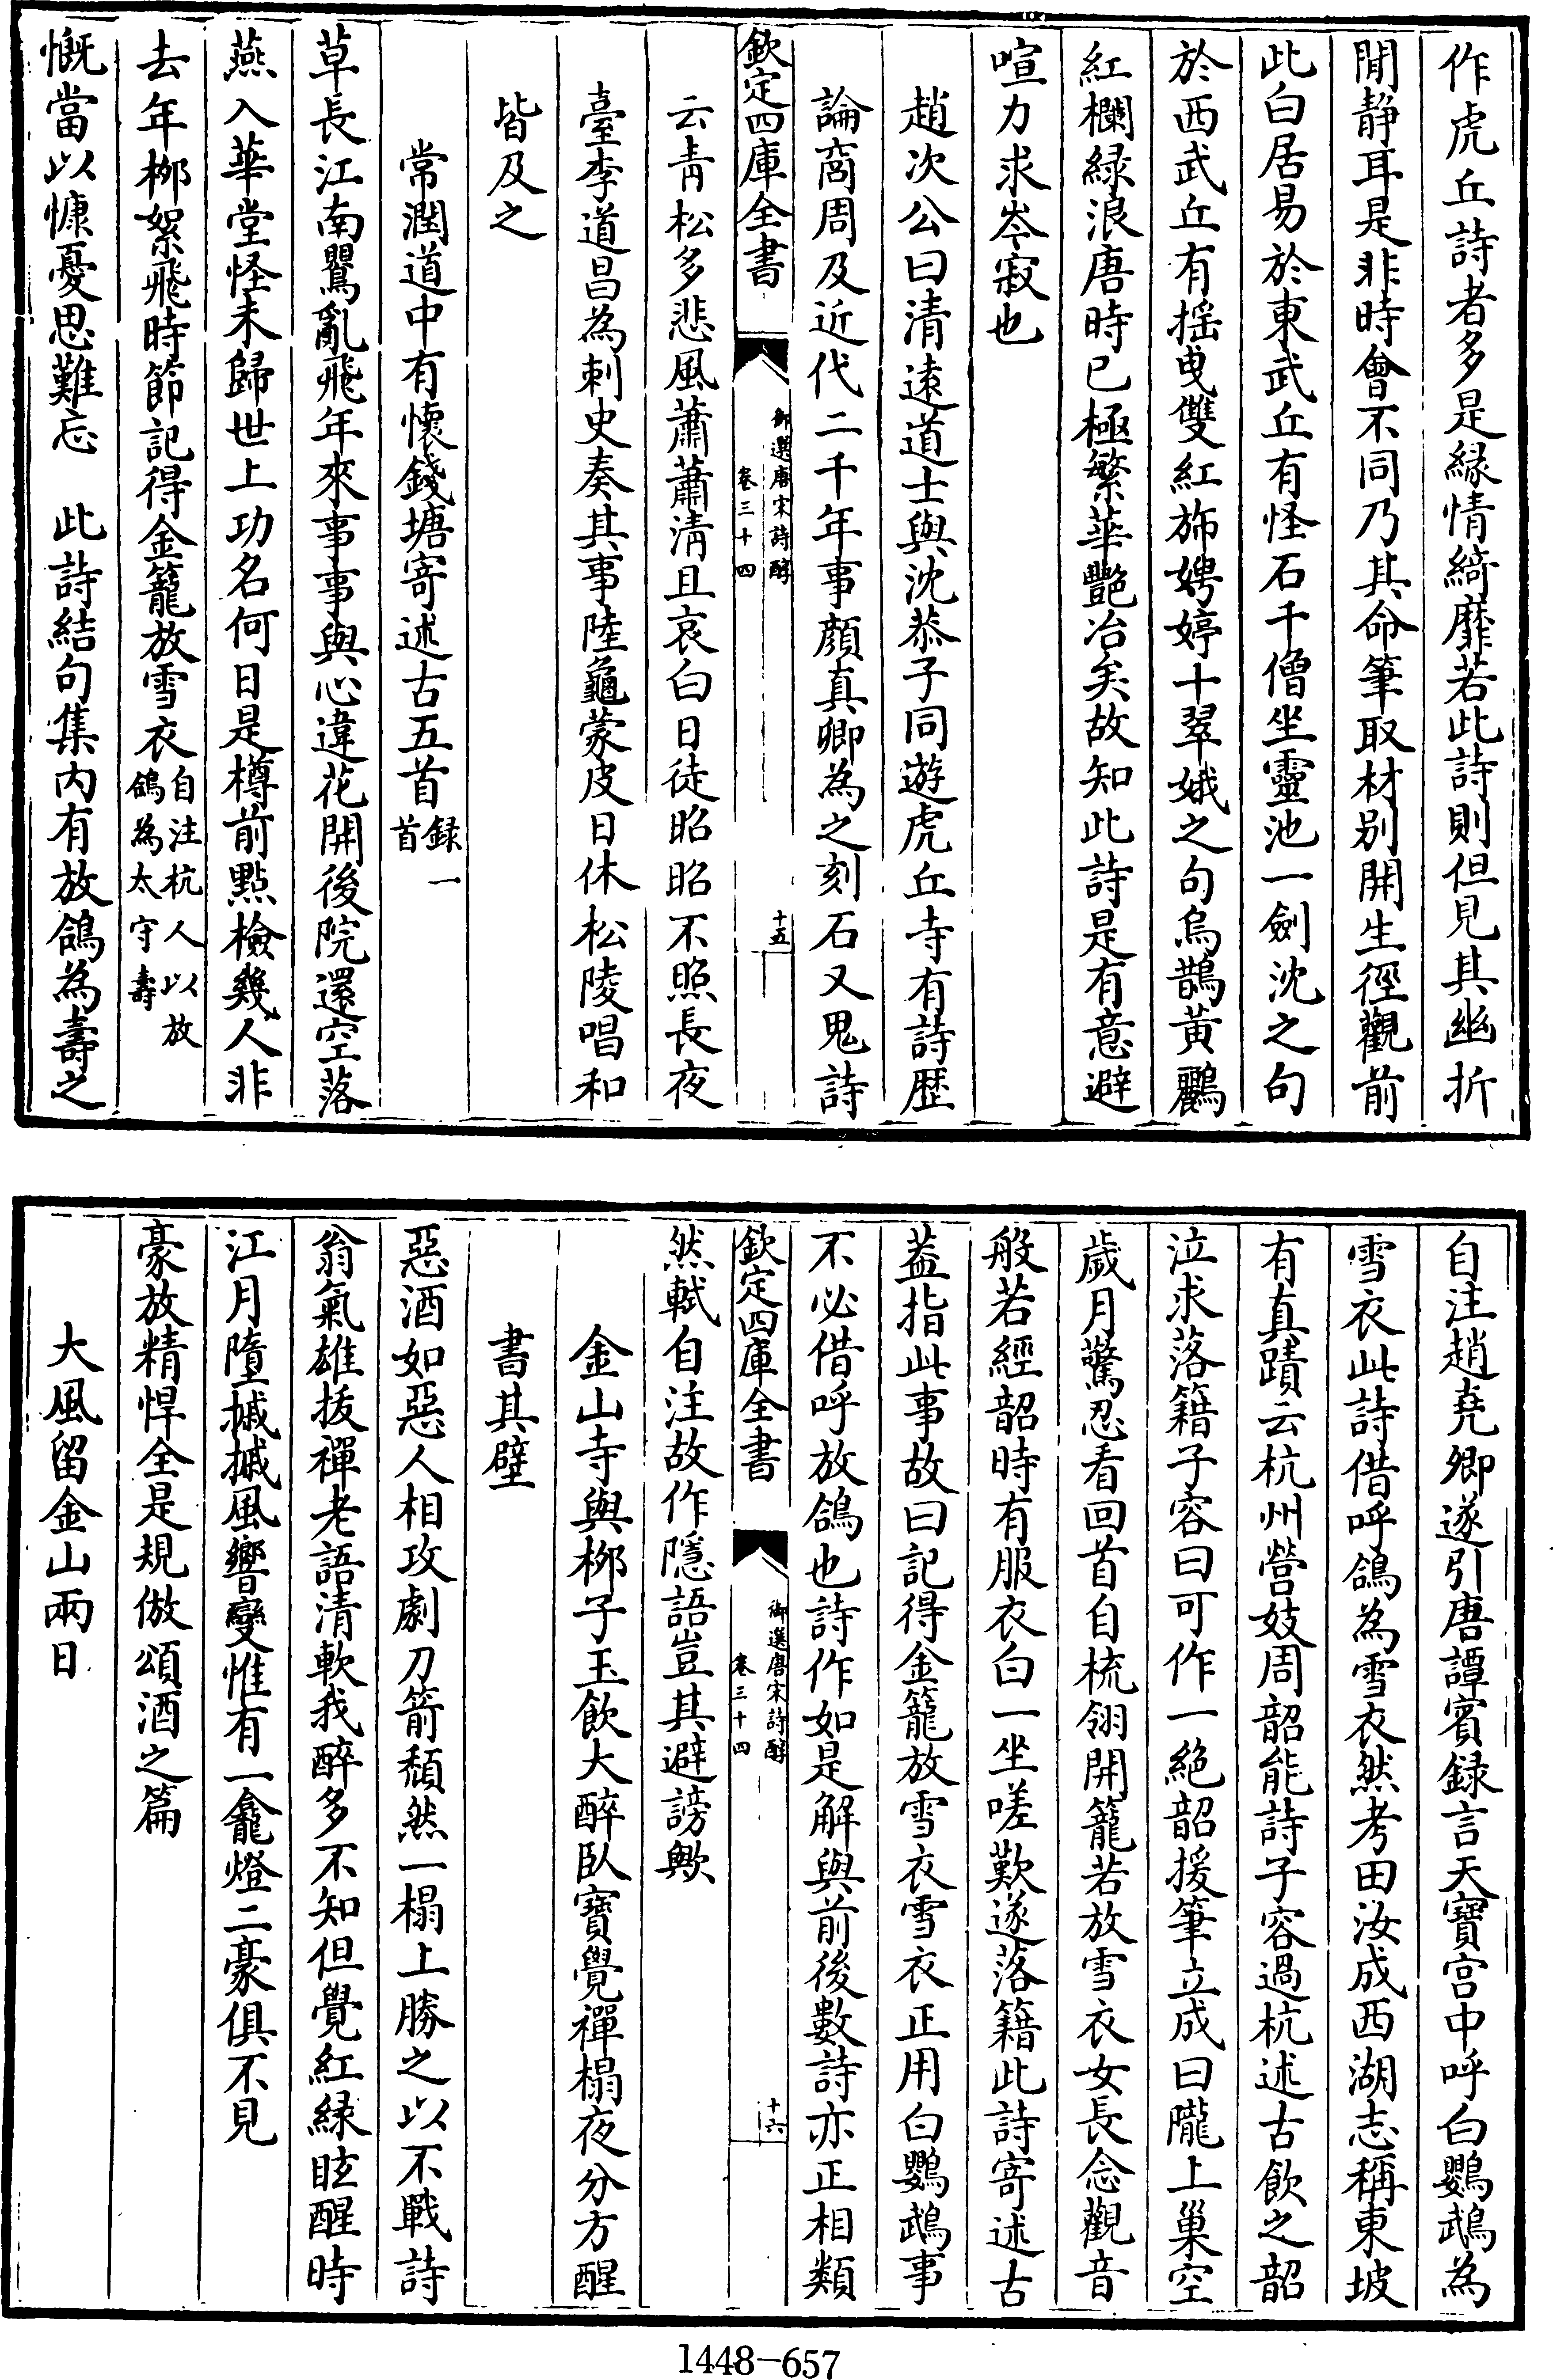 作虎丘詩者多是緣情綺靡若此詩則但見其幽折
閒静耳是非時會不同乃其命筆取材别開生徑觀前
此白居易於東武丘有怪石千僧坐靈池一劍沈之句
於西武丘有揺曳雙紅斾娉婷十翠娥之句烏鵲黄鸝
紅欄緑浪唐時已極繁華艷冶矣故知此詩是有意避
喧力求岑寂也
趙次公曰清遠道士與沈恭子同遊虎丘寺有詩歴
論商周及近代二千年事顔真卿為之刻石又鬼詩
欽定四庫全書
御選唐宋詩醇
卷三十四
十五
云青松多悲風蕭蕭清且哀白日徒昭昭不照長夜
臺李道昌為刺史奏其事陸龜蒙皮日休松陵唱和
皆及之
常潤道中有懷錢塘寄述古五首錄一首
草長江南鸎亂飛年來事事與心違花開後院還空落
燕入華堂怪未歸世上功名何日是樽前點檢幾人非
去年栁絮飛時節記得金籠放雪衣自注杭人以放鴿為太守壽
慨當以慷憂思難忘　此詩結句集内有放鴿為壽之
自注趙堯卿遂引唐譚賓録言天寶宫中呼白鸚鵡為
雪衣此詩借呼鴿為雪衣然考田汝成西湖志稱東坡
有真蹟云杭州營妓周韶能詩子容過杭述古飲之韶
泣求落籍子容曰可作一絶韶援筆立成曰隴上巢空
歲月驚忍看回首自梳翎開籠若放雪衣女長念觀音
般若經韶時有服衣白一坐嗟歎遂落籍此詩寄述古
葢指此事故曰記得金籠放雪衣雪衣正用白鸚鵡事
不必借呼放鴿也詩作如是解與前後數詩亦正相類
欽定四庫全書
御選唐宋詩醇
卷三十四
十六
然軾自注故作隱語豈其避謗歟
金山寺與栁子玉飲大醉臥寶覺禪榻夜分方醒
書其壁
惡酒如惡人相攻劇刀箭頹然一榻上勝之以不戰詩
翁氣雄拔禪老語清軟我醉多不知但覺紅緑眩醒時
江月墮摵摵風響變惟有一龕燈二豪俱不見
豪放精悍全是規倣頌酒之篇
大風留金山兩日
1448-657